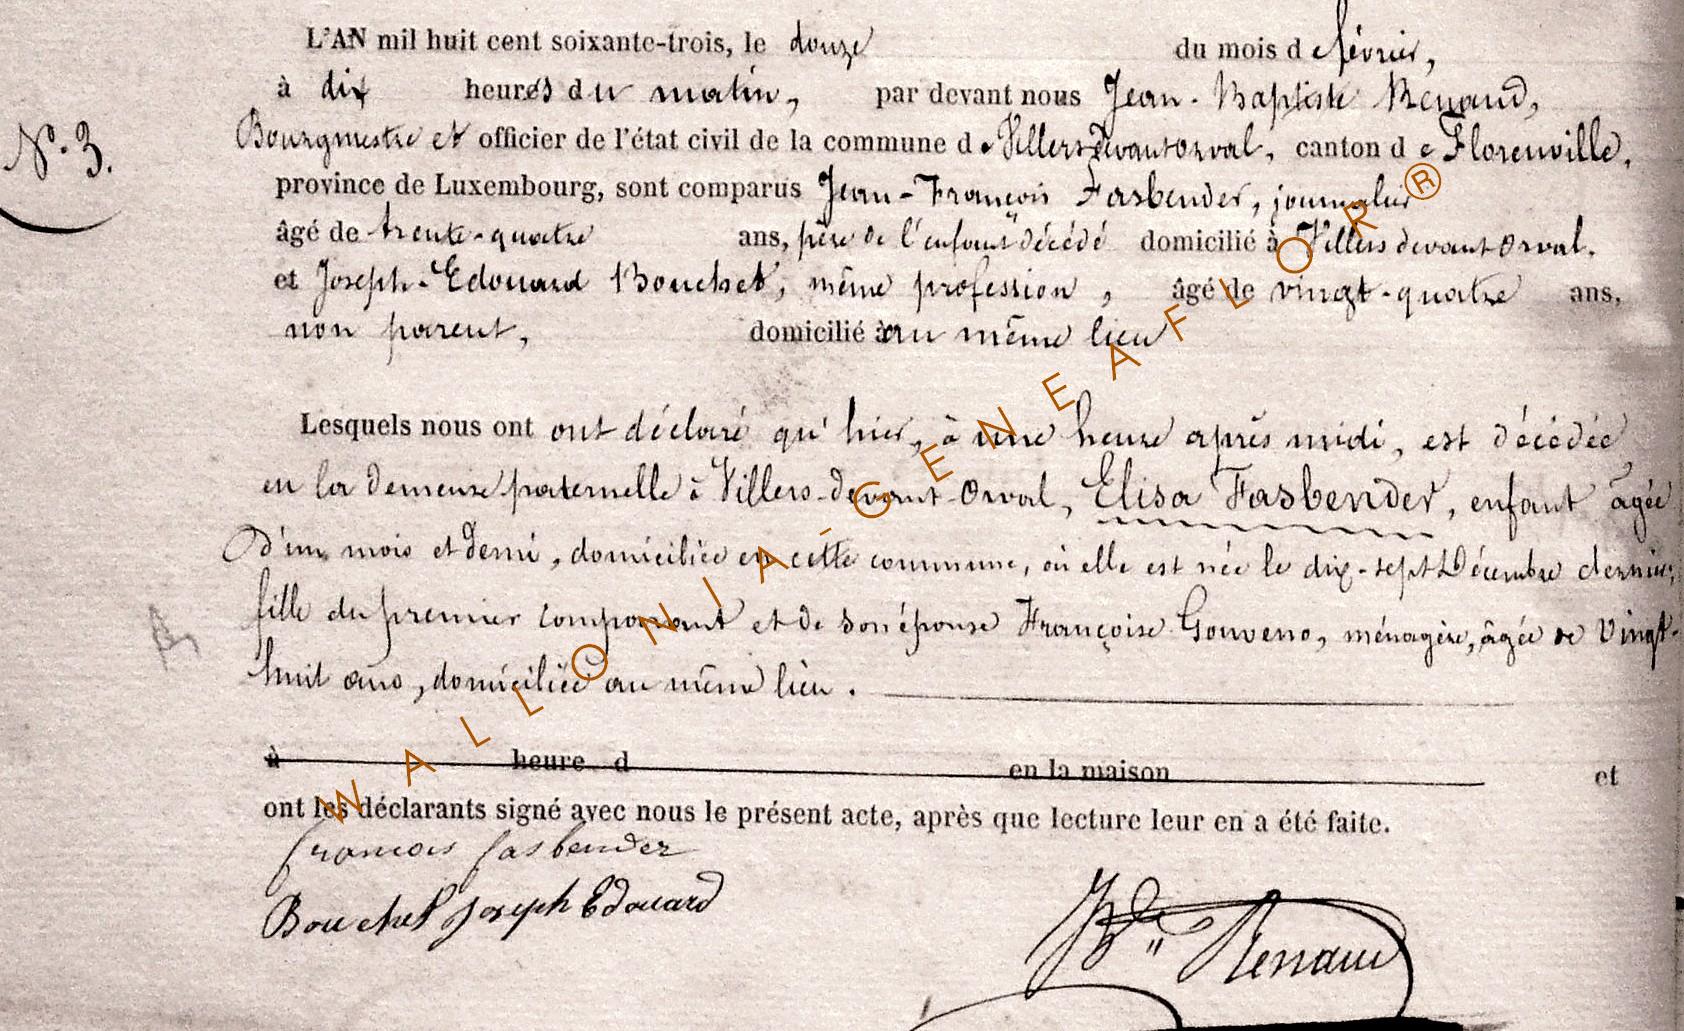 L'AN mil huit cent soixante-trois, le douze du mois de février,
à dix heures du matin, par devant nous Jean-Baptiste Renaud,
N.º 3.
Bourgmestre et officier de l'état civil de la commune de Villersdevantorval, canton de Florenville,
province de Luxembourg, sont comparus Jean-François Fasbender, journalier
âgé de trente-quatre ans, père de l'enfant décédé domicilié à Villers devant Orval.
et Joseph-Edouard Bouchet, même profession, âgé de vingt-quatre ans,
non parent, domicilié à au même lieu
Lesquels nous ont ont déclaré qu'hier, à une heure après midi, est décédée
en la demeure paternelle à Villers-devant-Orval, Elisa Fasbender, enfant âgée
d'un mois et demi, domiciliée en cette commune, où elle est née le dix-sept Décembre dernier,
fille du premier comparant et de son épouse Françoise Gouveno, ménagère, âgée de vingt-
huit ans, domiciliée au même lieu.
à heure d en la maison et
ont les déclarants signé avec nous le présent acte, après que lecture leur en a été faite.
francois fasbender
Bouchet Joseph Edouard
JBte Renaud
WALLONIA-GENEAFLOR®